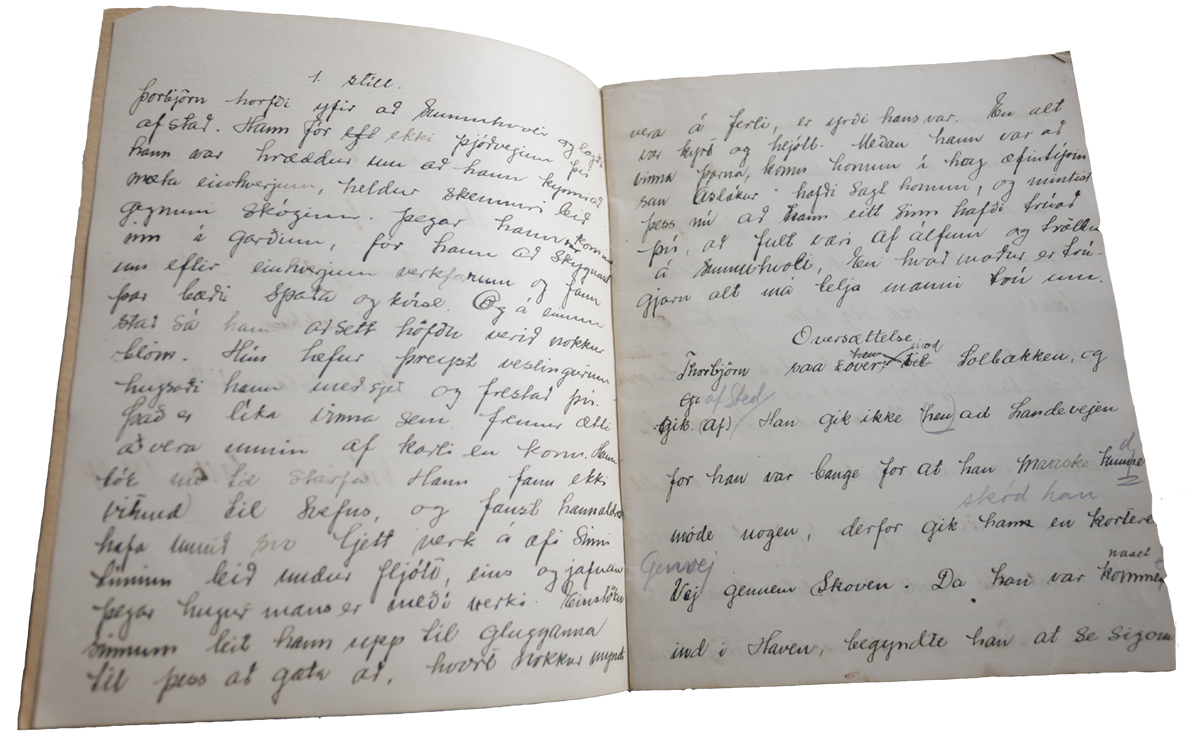 1. stíll.
Þorbjörn horfði yfir að Sunnuhvoli og lagði
af stað. Hann fór ekki þjóðveginn því
hann var hræddur um að hann kynni að
mæta einhverjum, heldur skemmri leið
gegnum skóginn. Þegar hann var kominn
inn í garðinn, fór hann að skyggnast
um eftir einhverjum verkfærum og fann
þar bæði spaða og kvísl. Og á einum
stað sá hann að sett höfðu verið nokkur
blóm. Hún hefur þreyst veslingurinn
hugsaði hann með sjer og frestað því.
Það er líka vinna sem fremur ætti
að vera unnin af karli en konu. Hann
tók nú til starfa. Hann fann ekki
til svefns, og fanst hann aldrei
hafa unnið svo ljett verk á æfi sinni
tíminn leið undur fljótt, eins og jafnan
þegar hugur mans er með í verki. Einstöku
sinnum leit hann upp til glugganna
til þess að gæta að, hvort nokkur myndi
vera á ferli, er yrði hans var. En alt
var kyrt og hljótt. Meðan hann var að
vinna þarna, komu honum í hug æfintýrin
sem Áslákur hafði sagt honum, og mintist
þess nú að hann eitt sinn hafði trúað
því, að fult væri af álfum og tröllum
á Sunnuhvoli, En hvað maður er trú-
gjarn alt má telja manni trú um.
Oversættelse
hen mod
Thorbjörn saa over til Solbakken, og
af sted
gik (af) Han gik ikke (hen) ad Landevejen
d
for han var bange for at han maaske kunne
skød han
møde nogen, derfor gik han en kortere
Genvej naaet
Vej gennem Skoven. Da han var kommen
ind i Haven, begyndte han at se sig om